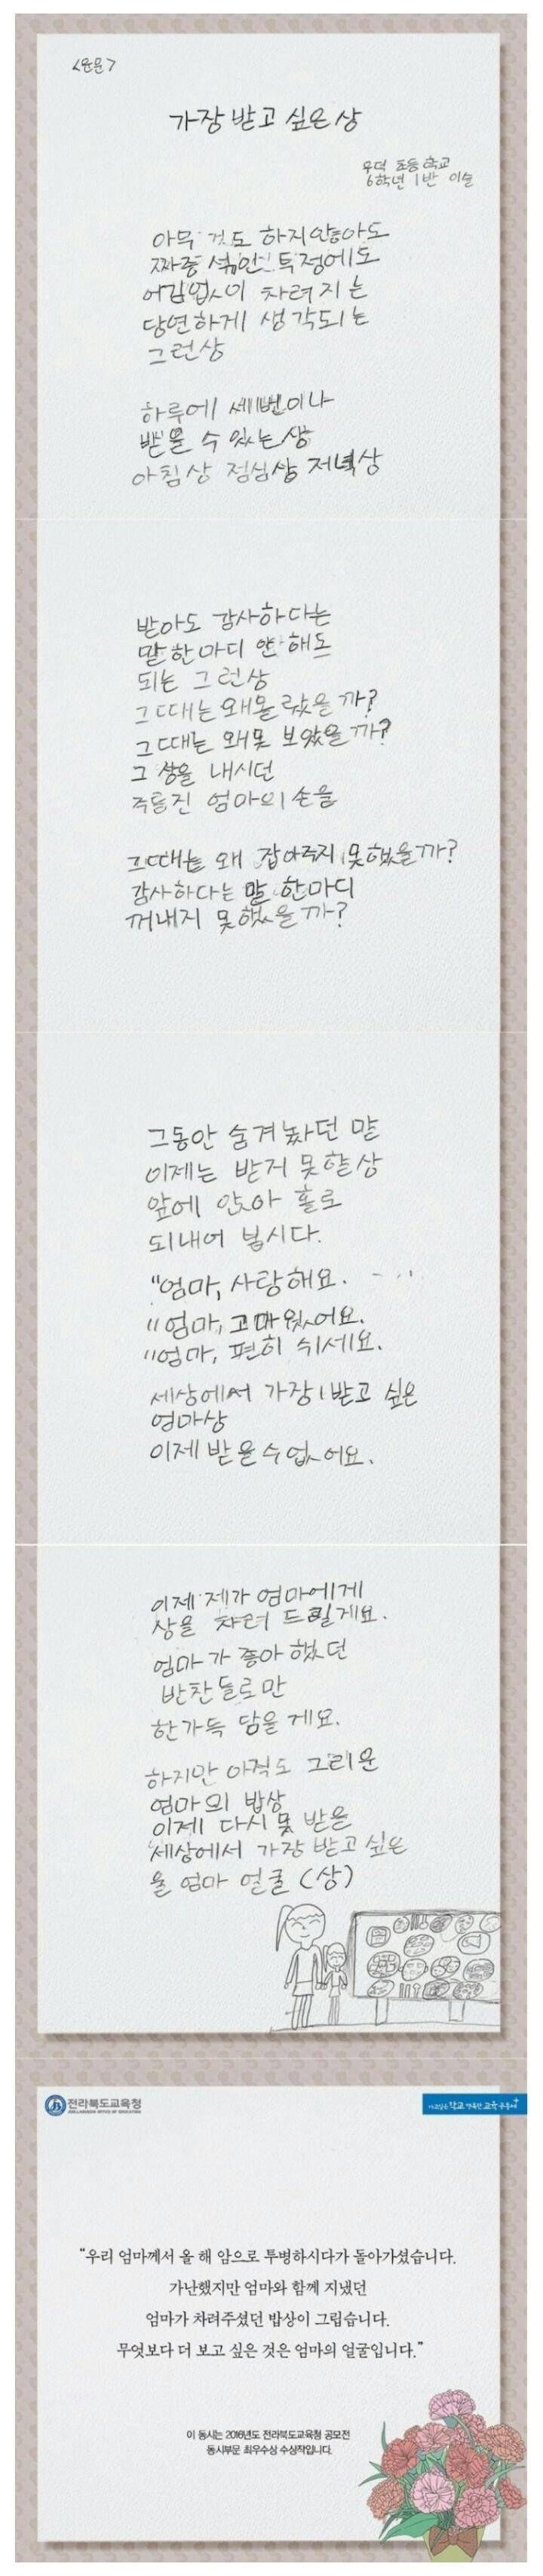 <운문>
가장 받고 싶은 상
우덕 초등학교
6학년 1반 이슬
아무 것도 하지않아도
짜증 섞인 투정에도
어김없이 차려지는
당연하게 생각되는
그런상
하루에 세번이나
받을 수 있는상
아침상 점심상 저녁상
받아도 감사하다는
말 한마디 안해도
되는 그런상
그때는 왜몰랐을까?
그때는 왜못 보았을까?
그 상을 내시던
주름진 엄마의 손을
그때는 왜 잡아주지 못했을까?
감사하다는 말 한마디
꺼내지 못했을까?
그동안 숨겨놨던 말
이제는 받지 못할상
앞에 앉아 홀로
되내어 봅시다.
"엄마, 사랑해요.
"엄마, 고마웠어요.
"엄마, 편히 쉬세요.
세상에서 가장 받고 싶은
엄마상
이제 받을수없어요.
이제 제가 엄마에게
상을 차려 드릴게요.
엄마가 좋아했던
반찬들로만
한가득 담을게요.
하지만 아직도 그리운
엄마의 밥상
이제 다시 못 받을
세상에서 가장 받고 싶은
울 엄마 얼굴 (상)
전라북도교육청
"우리 엄마께서 올 해 암으로 투병하시다가 돌아가셨습니다.
가난했지만 엄마와 함께 지냈던
엄마가 차려주셨던 밥상이 그립습니다.
무엇보다 더 보고 싶은 것은 엄마의 얼굴입니다."
이 동시는 2016년도 전라북도교육청 공모전
동시부문 최우수상 수상작입니다.